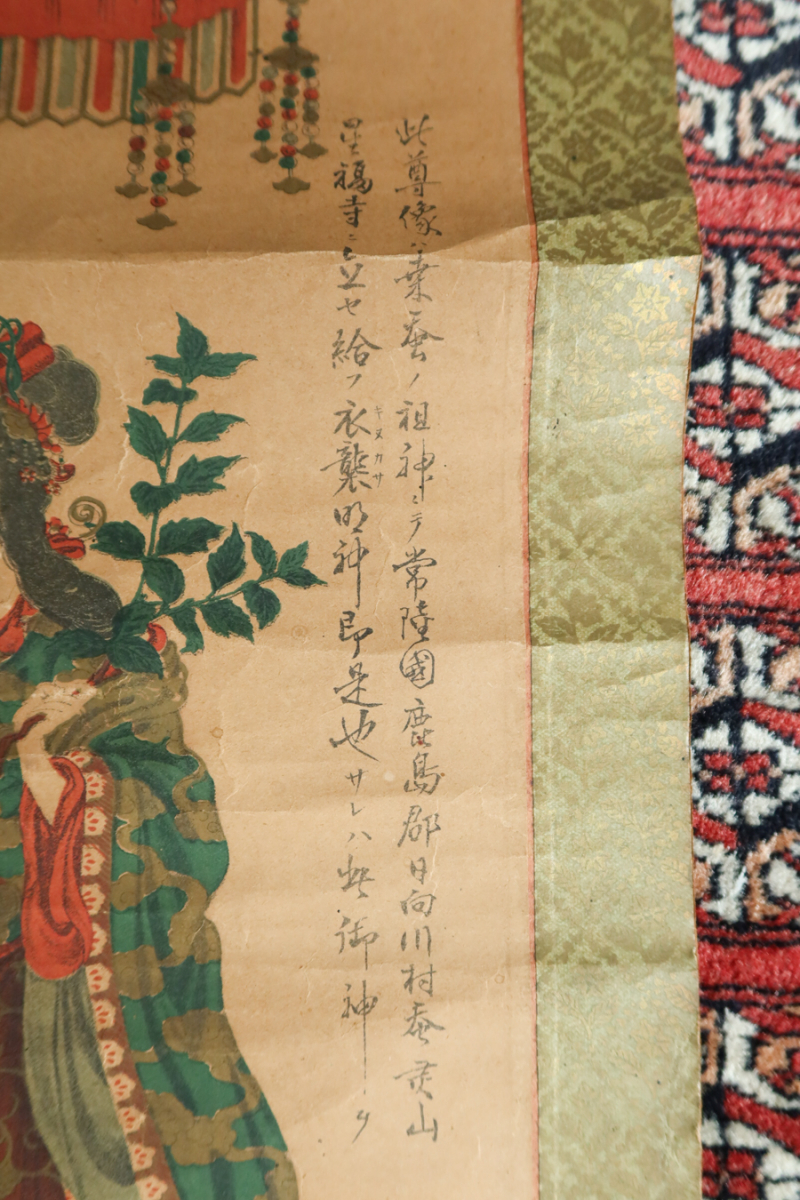 此尊像ハ養蚕ノ祖神ニシテ常陸國鹿島郡日向川村蚕灵山
星福寺ニ立セ給フ衣襲明神即是也サレハ此御神ノ
キヌカサ